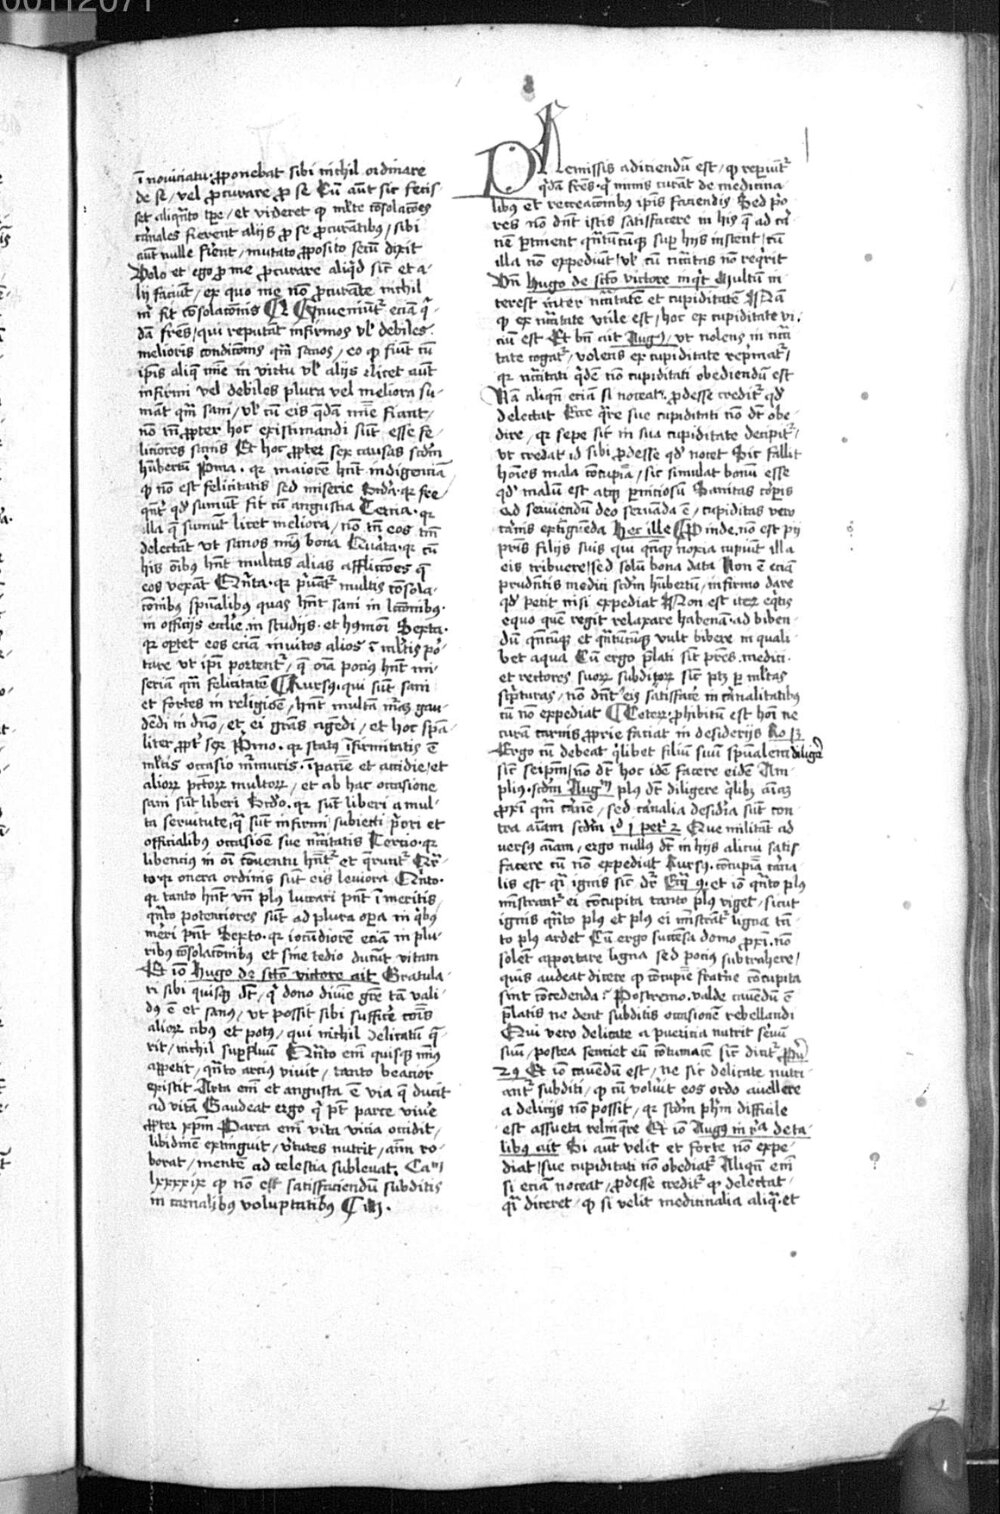 00112071
ī noviciatu. ꝓponebat sibi nichil ordinare
de se / vel ꝓcurare ꝓ se Cū aūt sic fecis
set aliqͣnto tꝑe / et videret qꝫ ml̄te ꝯsolac̄oēs
car̄nales fierent alijs ꝓ se ꝓcurātibꝰ / sibi
aūt nulle fieʳent / mutato ꝓposito secū dixit
Volo et ego ꝓ me ꝓcurare aliqͥd sic̄ et a-
lij faciūt / ex quo me nō ꝓcurāte nichil
m̄ fit ꝯsolac̄onis Cōveniūtʳ eciā qͥ-
dā fr̄es / qui reputāt infirmos vl̓ debiles
melioris condicōnis qͣm sanos / eo qꝫ fiūt cū
ip̄is aliq̄ in victu vl̓ alijs Licet aūt
infirmi vel debiles plura vel meliora su-
māt qͣm sani / vl̓ cū eis qͣdā fiant /
nō tn̄ ꝓpter hoc existimandi sūt esse fe-
liciores sanis Et hoc ꝓpter sex causas scd̄m
hūbertū Pͥma. qꝛ maiorē hn̄t indigenciā
qꝫ nō est felicitatis sed miserie Scd̄a. qꝛ fre
qn̄tʳ qd̓ sumūt fit cū angustia Tercia. qꝛ
illa q̄ sumūt licet meliora / nō tn̄ eos tm̄
delectāt ut sanos minꝰ bona Quarta. qꝛ cū
his oībꝰ hn̄t multas alias afflicc̄oēs q̄
eos vexāt Quinta. qꝛ pͥvātʳ multis ꝯsola-
cōnibꝰ spūalibꝰ quas hn̄t sani in lc̄onibꝰ.
in officijs eccl̄ie. in studijs. et hꝰmoi Sexta.
qꝛ oꝑtet eos eciā invitos alios ī ml̄tis por
tare ut ip̄i portentʳ / q̄ oīa pociꝰ hn̄t mi-
seriā qͣm felicitatē Rursꝰ. qui sūt sani
et fortes in religiōe / hn̄t multā gau-
dēdi in dn̄o / et ei gr̄as agēdi / et hoc spāa
liter ꝓpt̓ sex Pͥmo. qꝛ statꝰ īfirmitatis ē
ml̄tis occasio īpaciēcie et accidie / et
alioꝝ pctōꝝ multoꝝ / et ab hac occasione
sani sūt liberi Scd̄o. qꝛ sūt liberi a mul-
ta servitute / qͣ sūt infirmi subiecti pͥori et
officialibꝰ occasiōe sue Tercio. qꝛ
libencius in oī cōventu hn̄tʳ et qͥrūtʳ Qͣr-
to. qꝛ onera ordinis sūt eis leviora Qͥnto.
qꝛ tanto hn̄t plꝰ lucrari pn̄t ī meritis,
qͣnto potenciores sūt ad plura oꝑa in qͥbꝰ
m̄eri pn̄t Sexto. qꝛ iocūdiorē eciā in plu-
ribꝰ ꝯsolac̄onibꝰ et sine tedio ducūt vitam
Et iō Hugo de scō victore ait Gratula-
ri sibi quisqꝫ dꝫ / qͥ dono divine gr̄e tā vali-
dꝰ ē et sanꝰ / ut possit sibi sufficeʳ cōis
alioꝝ cibꝰ et potꝰ / qui nichil delicatū q̄-
rit / nichil suꝑfluū Qͣnto em̄ quisqꝫ minꝰ
appetit / qͣnto arciꝰ vivit / tanto beacior
existit Arta em̄ et angusta ē via q̄ ducit
ad vitā Gaudeat ergo qͥ pt̄ parce viveʳ
ꝓpter xp̄m Parca em̄ vita vicia occidit /
libidinē extinguit / v̓tutes nutrit / aīm ro-
borat / mentē ad celestia sublevat. Cam
lxxxxix qꝫ nō est satisfaciendū subditis
in carnalibꝰ voluptatibꝰ
Premissis adiciendū est / qꝫ reꝑiūtʳ
qͥdā fr̄es. qͥ nimis curāt de medicina-
libꝰ et recreac̄onibꝰ ip̄is faciendis Sed pͥo
res nō dn̄t istis satisfacere in his q̄ ad car
nē ꝑtinent quātūcūqꝫ suꝑ hijs instent / cū
illa nō expediūt / vl̓ cū nc̄citas nō reqͥrit
Vn̄ Hugo de scō victore inqͥt Multū in
terest inter nc̄citatē et cupiditatē Nā
qꝫ ex nc̄citate utile est / hoc ex cupiditate vi-
ciū est Et bn̄ ait Augꝰ / ut nolens in nc̄ci
tate cogatʳ / volens ex cupiditate repͥmatʳ /
qꝛ nc̄citati qͥdē nō cupiditati obediendū est
Nā aliqn̄ eciā si noceat. ꝓdesse creditʳ qd̓
delectat Ecce qͣre sue cupiditati nō dꝫ obe-
dire / qꝛ sepe sic in sua cupiditate decipitʳ /
ut credat id sibi ꝓdesse qd̓ nocet Sic fallit
hoīes mala cōcupīa / sic simulat bonū esse
qd̓ malū est atqꝫ ꝑniciosū Sanitas corꝑis
ad serviendū deo servāda ē / cupiditas vero
carnis extinguēda hec ille Proinde. nō est pij
pr̄is filijs suis qui qn̄qꝫ noxia cupiūt illa
eis tribuere / sed solū bona data Non ē eciā
prudētis medici scd̄m hūbertū / infirmo dare
qd̓ petit nisi expediat Non est iteꝝ eqͥtis
equo quē regit relaxare habenā. ad biben-
dū qn̄cūqꝫ et qͣntūcūqꝫ vult bibere in quali-
bet aqua Cū ergo p̄lati sint pr̄es. medici.
et rectores suoꝝ subditoꝝ sic̄ ptꝫ ꝑ ml̄tas
scpͥturas / nō dn̄t eis satisfaceʳ in carnalitatibꝰ
cū nō expediat Ceteꝝ. ꝓhibitū est hoī ne
curam carnis ꝓprie faciat in desiderijs Ro 13
Ergo cū debeat qͥlibet filiū suū spūalem diligeʳ
sic̄ seip̄m / nō dꝫ hoc idē facere eidē Am-
pliꝰ. scd̄m Augm̄ plꝰ dꝫ diligere qͥlibꝫ aīam
ꝓxi qͣm carnē / sed carnalia desid̓ia sūt con
tra aīam scd̄m id 1 pet 2 Que militāt ad
versꝰ aīam, ergo nullꝰ dꝫ in hijs alicui satis
facere cū nō expediat Rursꝰ. cōcupīa carna
lis est qͣsi ignis sic̄ dr̄ Eccͥ 9. et iō qͣnto plꝰ
ministratʳ ei cōcupita tanto plꝰ viget / sicut
ignis qͣnto plꝰ et plꝰ ei ministratʳ ligna tā-
to plꝰ ardet Cū ergo succēsa domo ꝓxi. nō
solēt apportare ligna sed pociꝰ subtrahere /
quis audeat dicere qꝫ cōcupīe statīe cōcupita
sint cōcedenda? Postremo. valde cavendū ē
p̄latis ne dent subditis occasionē rebellandi
Qui vero delicate a puericia nutrit servū
suū / postea senciet eū cōtumacē sic̄ dicitʳ Pͬv
29 Et iō cavendū est / ne sic delicate nutri-
antʳ subditi / qꝫ cū voluit eos ordo avellere
a delicijs nō possit / qꝛ scd̄m ph̄m difficile
est assueta relinq̄re Et iō Augꝰ in rͣa de ta-
libꝰ ait Si aūt velit et forte nō expe-
diat / sue cupiditati nō obediatʳ Aliqn̄ em̄
si eciā noceat / ꝓdesse creditʳ qꝫ delectat.
qͣsi diceret / qꝫ si velit medicinalia aliqͣ. et